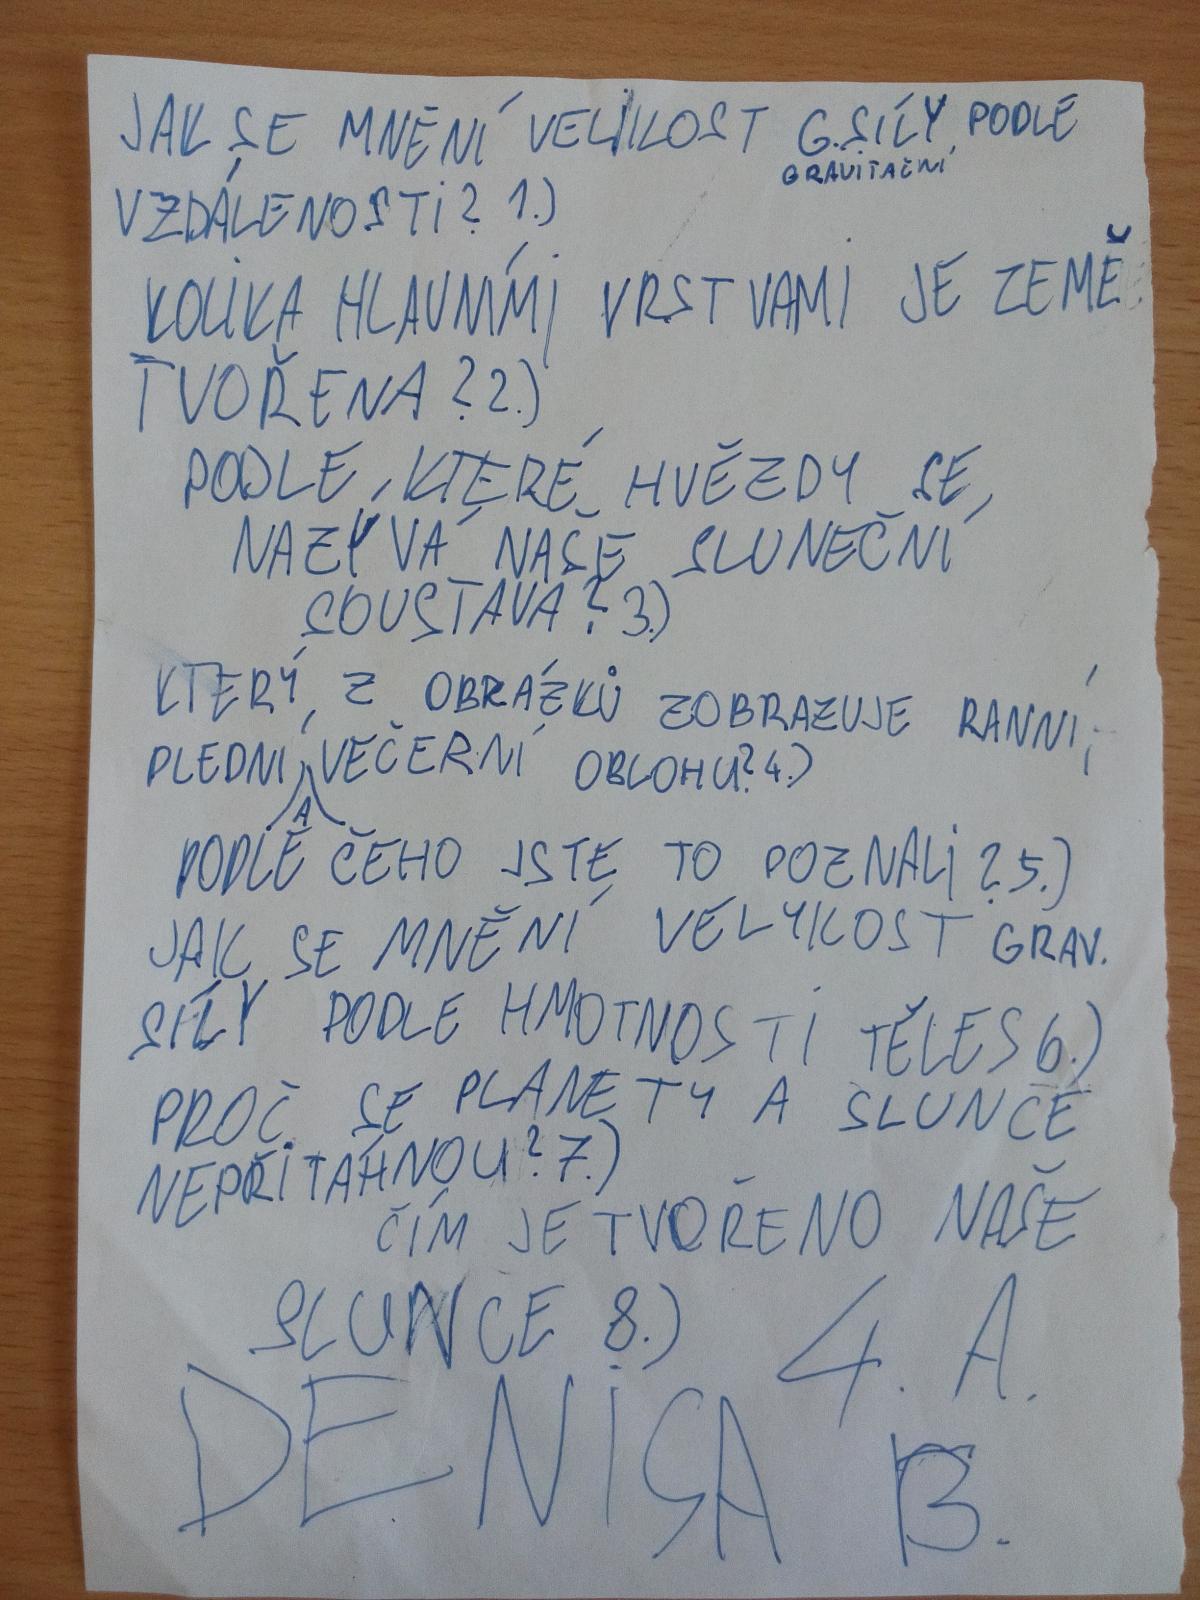 JAK SE MNĚNÍ VELIKOST G. SÍLY PODLE
GRAVITAČNÍ
VZDÁLENOSTI? 1.)
KOLIKA HLAVNÍMI VRSTVAMI JE ZEMĚ
TVOŘENA? 2.)
PODLE, KTERÉ HVĚZDY SE,
NAZÝVÁ NAŠE SLUNEČNÍ
SOUSTAVA? 3.)
KTERÝ Z OBRÁZKŮ ZOBRAZUJE RANNÍ,
PLEDNÍ, VEČERNÍ OBLOHU? 4.)
A
PODLE ČEHO JSTE TO POZNALI? 5.)
JAK SE MNĚNÍ VELYKOST GRAV.
SÍLY PODLE HMOTNOSTI TĚLES 6.)
PROČ SE PLANETY A SLUNCE
NEPŘITÁHNOU? 7.)
ČÍM JE TVOŘENO NAŠE
SLUNCE 8.)
4. A.
DENISA B.